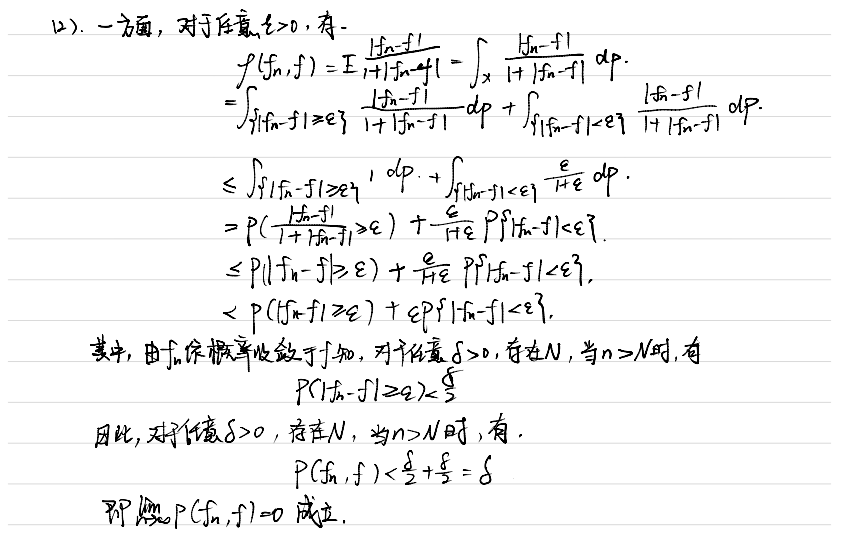 (2). 一方面, 对于任意 ε>0, 有.
ρ(fn,f) = E |fn-f| / (1+|fn-f|) = ∫_X |fn-f| / (1+|fn-f|) dp.
= ∫_{|fn-f|≥ε} |fn-f| / (1+|fn-f|) dp + ∫_{|fn-f|<ε} |fn-f| / (1+|fn-f|) dp.
≤ ∫_{|fn-f|≥ε} 1 dp. + ∫_{|fn-f|<ε} ε/(1+ε) dp.
= P( |fn-f| / (1+|fn-f|) ≥ε) + ε/(1+ε) P{|fn-f|<ε}.
≤ P(|fn-f|≥ε) + ε/(1+ε) P{|fn-f|<ε}.
< P(|fn-f|≥ε) + εP{|fn-f|<ε}.
其中, 由fn依概率收敛于f知, 对于任意 δ>0, 存在N, 当n>N时, 有
P(|fn-f|≥ε)<δ/2
因此, 对于任意δ>0, 存在N, 当n>N时, 有.
ρ(fn,f)<δ/2+δ/2=δ
即 ρ(fn,f)=0 成立.